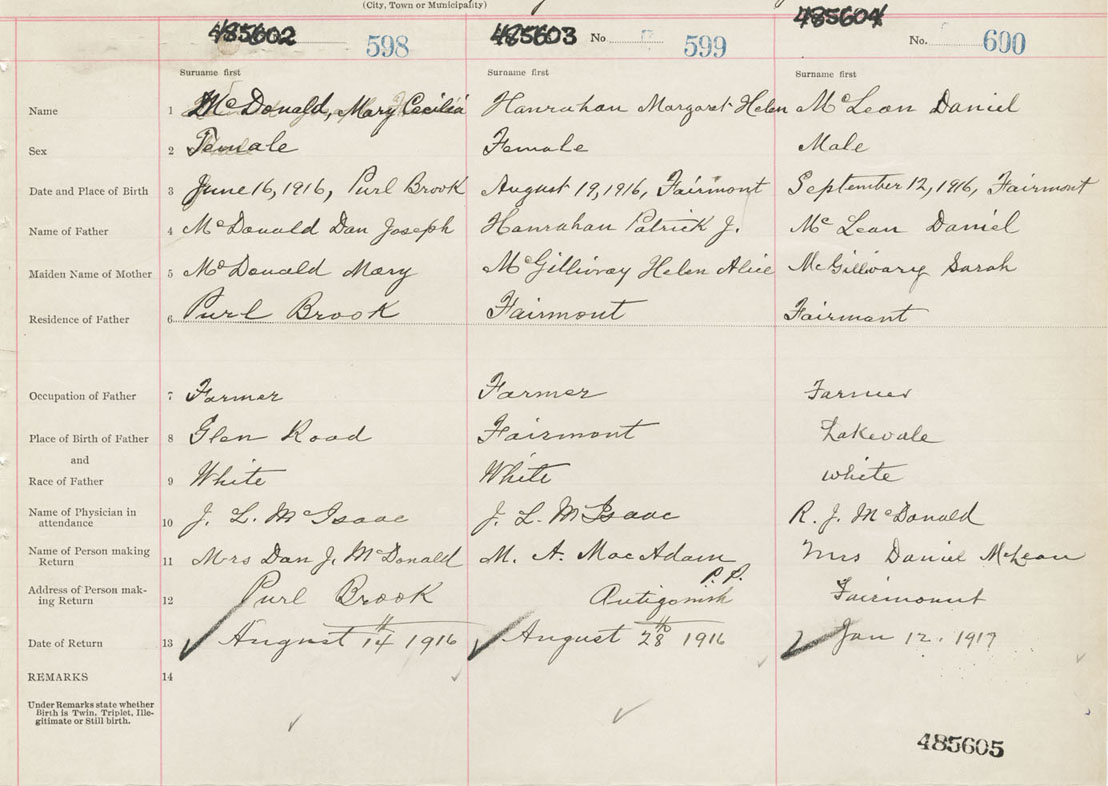 (City, Town or Municipality)
485602 598 485603 No 599 485604 No. 600
Surname first Surname first Surname first
Name 1 McDonald, Mary Cecilia Hanrahan Margaret Helen McLean Daniel
Sex 2 Female Female Male
Date and Place of Birth 3 June 16, 1916, Purl Brook August 19, 1916, Fairmont September 12, 1916, Fairmont
Name of Father 4 McDonald Dan Joseph Hanrahan Patrick J. Mc Lean Daniel
Maiden Name of Mother 5 McDonald Mary McGillivray Helen Alice McGillvary Sarah
Residence of Father 6 Purl Brook Fairmont Fairmont
Occupation of Father 7 Farmer Farmer Farmer
Place of Birth of Father 8 Glen Road Fairmont Lakevale
and
Race of Father 9 White White White
Name of Physician in
attendance 10 J. L. McIsaac J. L. McIsaac R. J. McDonald
Name of Person making
Return 11 Mrs Dan J. McDonald M. A. MacAdam Mrs Daniel McLean
P. P.
Address of Person mak-
ing Return 12 Purl Brook Antigonish Fairmount
Date of Return 13 August 14th 1916 August 28th 1916 Jan 12. 1917
REMARKS 14
Under Remarks state whether
Birth is Twin, Triplet, Ille-
gitimate or Still birth.
485605